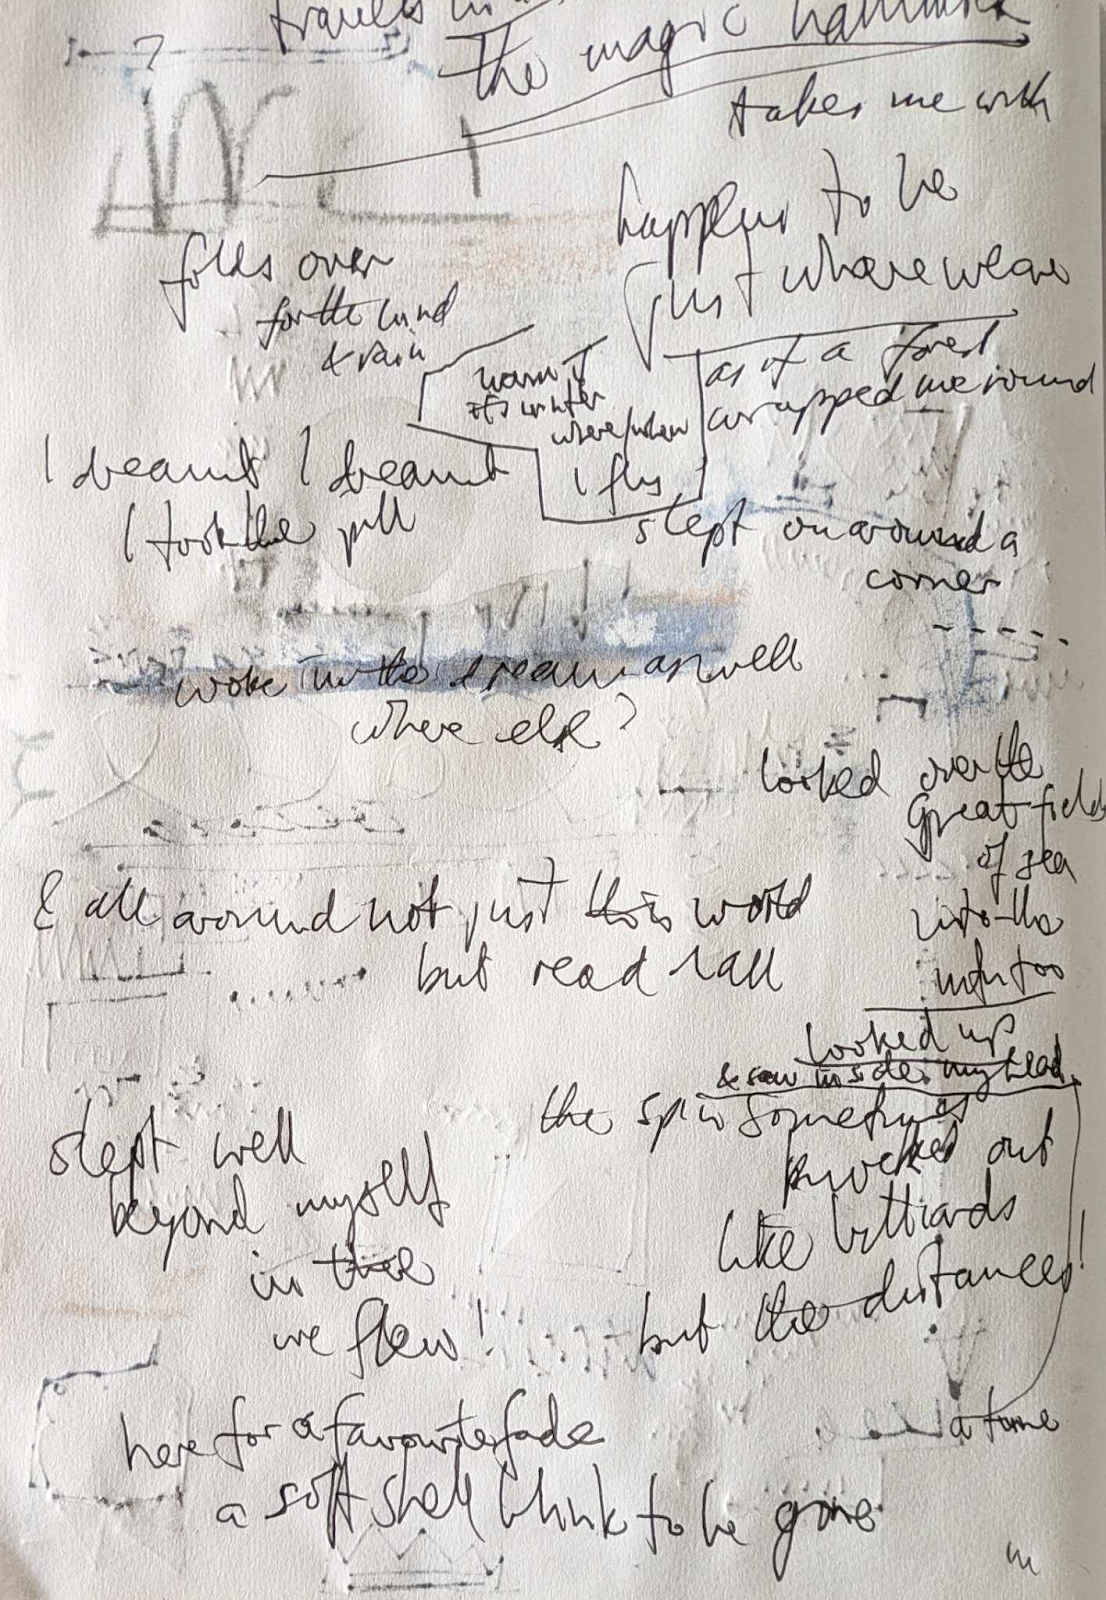 travels in
The magic hammock
takes me with
happens to be
just where we are
folds over
for the wind
& rain
warm if
it's winter
where/when
I fly
as if a forest
wrapped me round
I dreamt I dreamt
I took the pill
slept on around a
corner
woke in the dream as well
where else?
looked over the
great field
of sea
into the
too
& all around not just this world
but read all
looked up
& saw inside my head
the spin sometimes
knocked out
like billiards
but the distances!
a tune
slept well
beyond myself
in thee
we flew!
here for a favourite fade
a soft shell blink to be gone